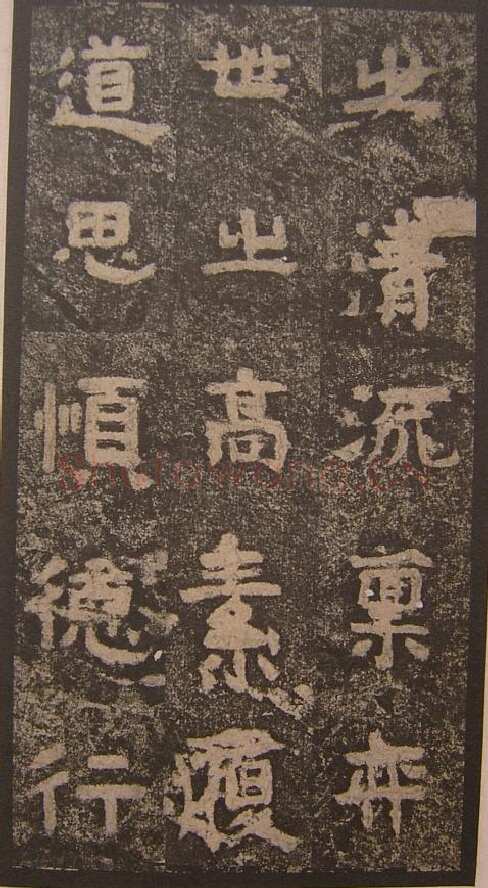 之清流禀弈
世之高素履
道思順德行